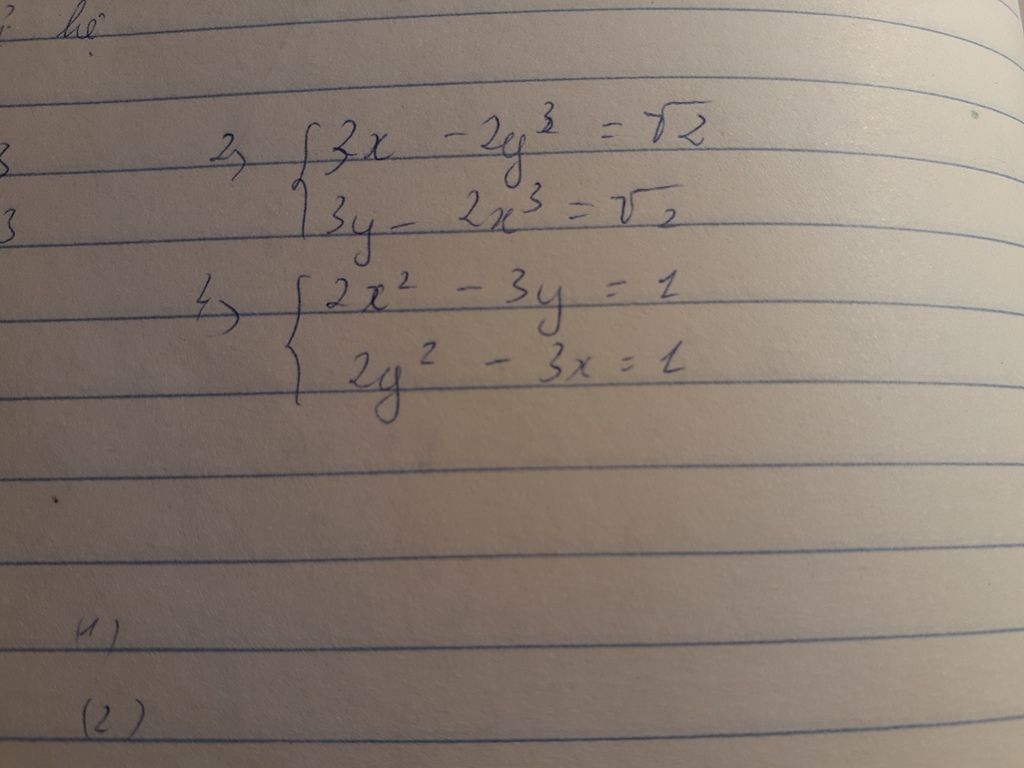 hệ
3
2) { 3x - 2y³ = √2
3 3y - 2x³ = √2
4) { 2x² - 3y = 1
2y² - 3x = 1
(1)
(2)